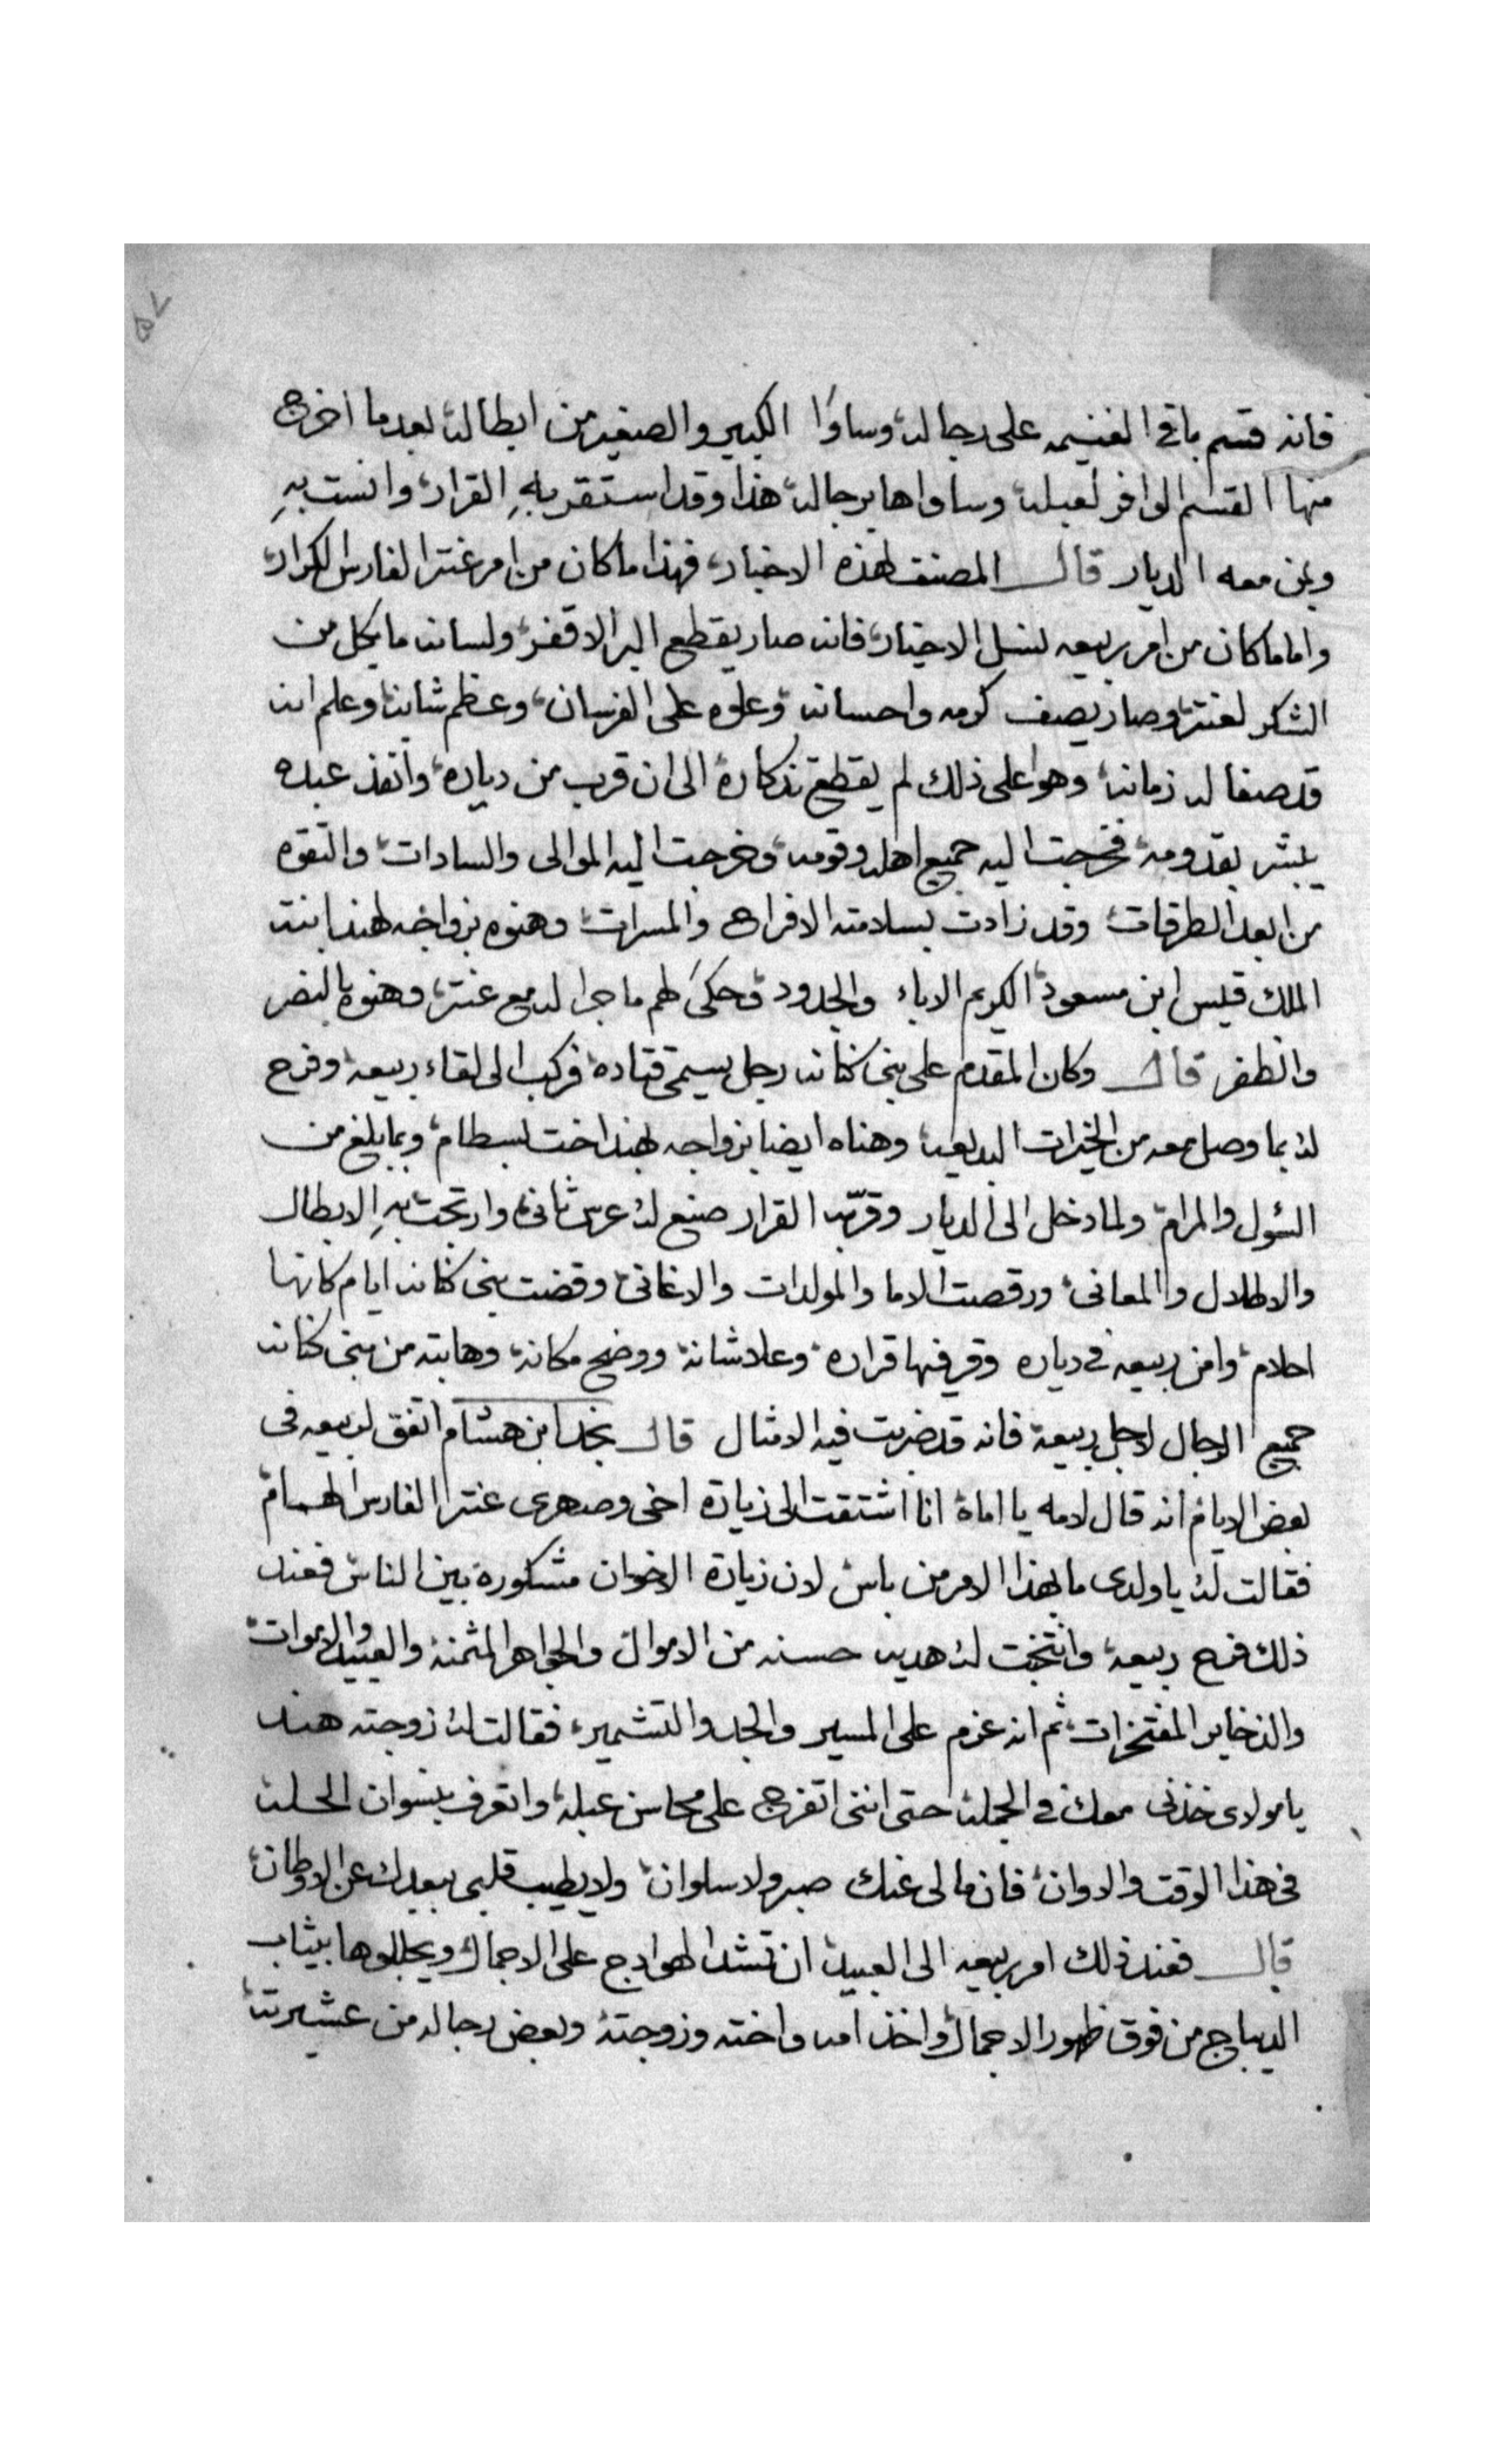 ٥٧
فانه قسم باقي الغنيمه على رجاله وساوا الكبير والصغير من ابطاله بعد ما اخرج
منها القسم الوافر لعبله وساواها برجاله هذا وقد استقر بهِ القرار وانست بهِ
وبمن معه الديار قال المصنف لهذه الاخبار فهذا ما كان من امر عنتر الفارس الكرار
واما ما كان من امر ربيعه لنسل الاخيار فانه صار يقطع البر الاقفر ولسانه ما يكل من
الشكر لعنتر وصار يصف كرمه واحسانه وعلوه على الفرسان وعظم شانه وعلم انه
قد صفا له زمانه وهوا على ذلك لم يقطع تذكاره الى ان قرب من دياره وانفذ عبده
يبشر بقدومه فخرجت اليه جميع اهله وقومه وخرجت اليه الموالى والسادات والتقوه
من ابعد الطرقات وقد زادت بسلامته الافراح والمسرات وهنوه بزواجه لهند ابنت
الملك قيس ابن مسعود الكريم الاباء والجدود وحكى لهم ما جرا له مع عنتر وهنوه بالنصر
والظفر قال وكان المقدم على بنى كنانه رجل يسمى قتاده فركب الى لقاء ربيعه وفرح
له بما وصل معه من الخيرات البديعه وهناه ايضا بزواجه بهند اخت بسطام وبما بلغ من
السُول والمرام ولما دخل الى الديار وقرّ به القرار صنع له عرس ثانى وارتجت بهِ الابطال
والاطلال والمعانى ورقصت الاما والمولدات والاغانى وقضت بنى كنانه ايام كانها
احلام وامن ربيعه في دياره وقر فيها قراره وعلا شانه ووضح مكانه وهابته من بنى كنانه
جميع الرجال لاجل ربيعه فانه قد ضربت فيه الامثال قال نجد ابن هشام اتفق لربيعه فى
بعض الايام انه قال لامه يا اماه انا اشتقت الى زيارة اخى وصهرى عنتر الفارس الهمام
فقالت له يا ولدى ما بهذا الامر من باس لان زيارة الاخوان مشكوره بين الناس فعند
ذلك فرح ربيعه وانتخبت له هديه حسنه من الاموال والجواهر المثمنه والعبيد والاموات
والذخاير المفتخرات ثم انه عزم على المسير والجد والتشمير فقالت له زوجته هند
يا مولاى خذنى معك في الجمله حتى اننى اتفرج على محاسن عبله واتعرف بنسوان الحله
فى هذا الوقت والاوان فان ما لى عنك صبر ولا سلوان ولا يطيب قلبى ببعدك عن الاوطان
قال فعند ذلك امر ربيعه الى العبيد ان تشد الهوادج على الاجمال ويجللوها بثياب
الديباج من فوق ظهور الاجمال واخذ امه واخته وزوجته وبعض رجاله من عشيرته